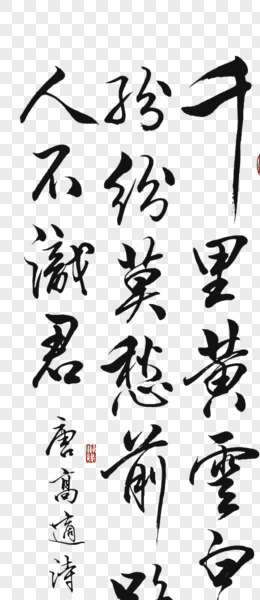 千里黄雲白
紛紛莫愁前路
人不識君
唐高適詩